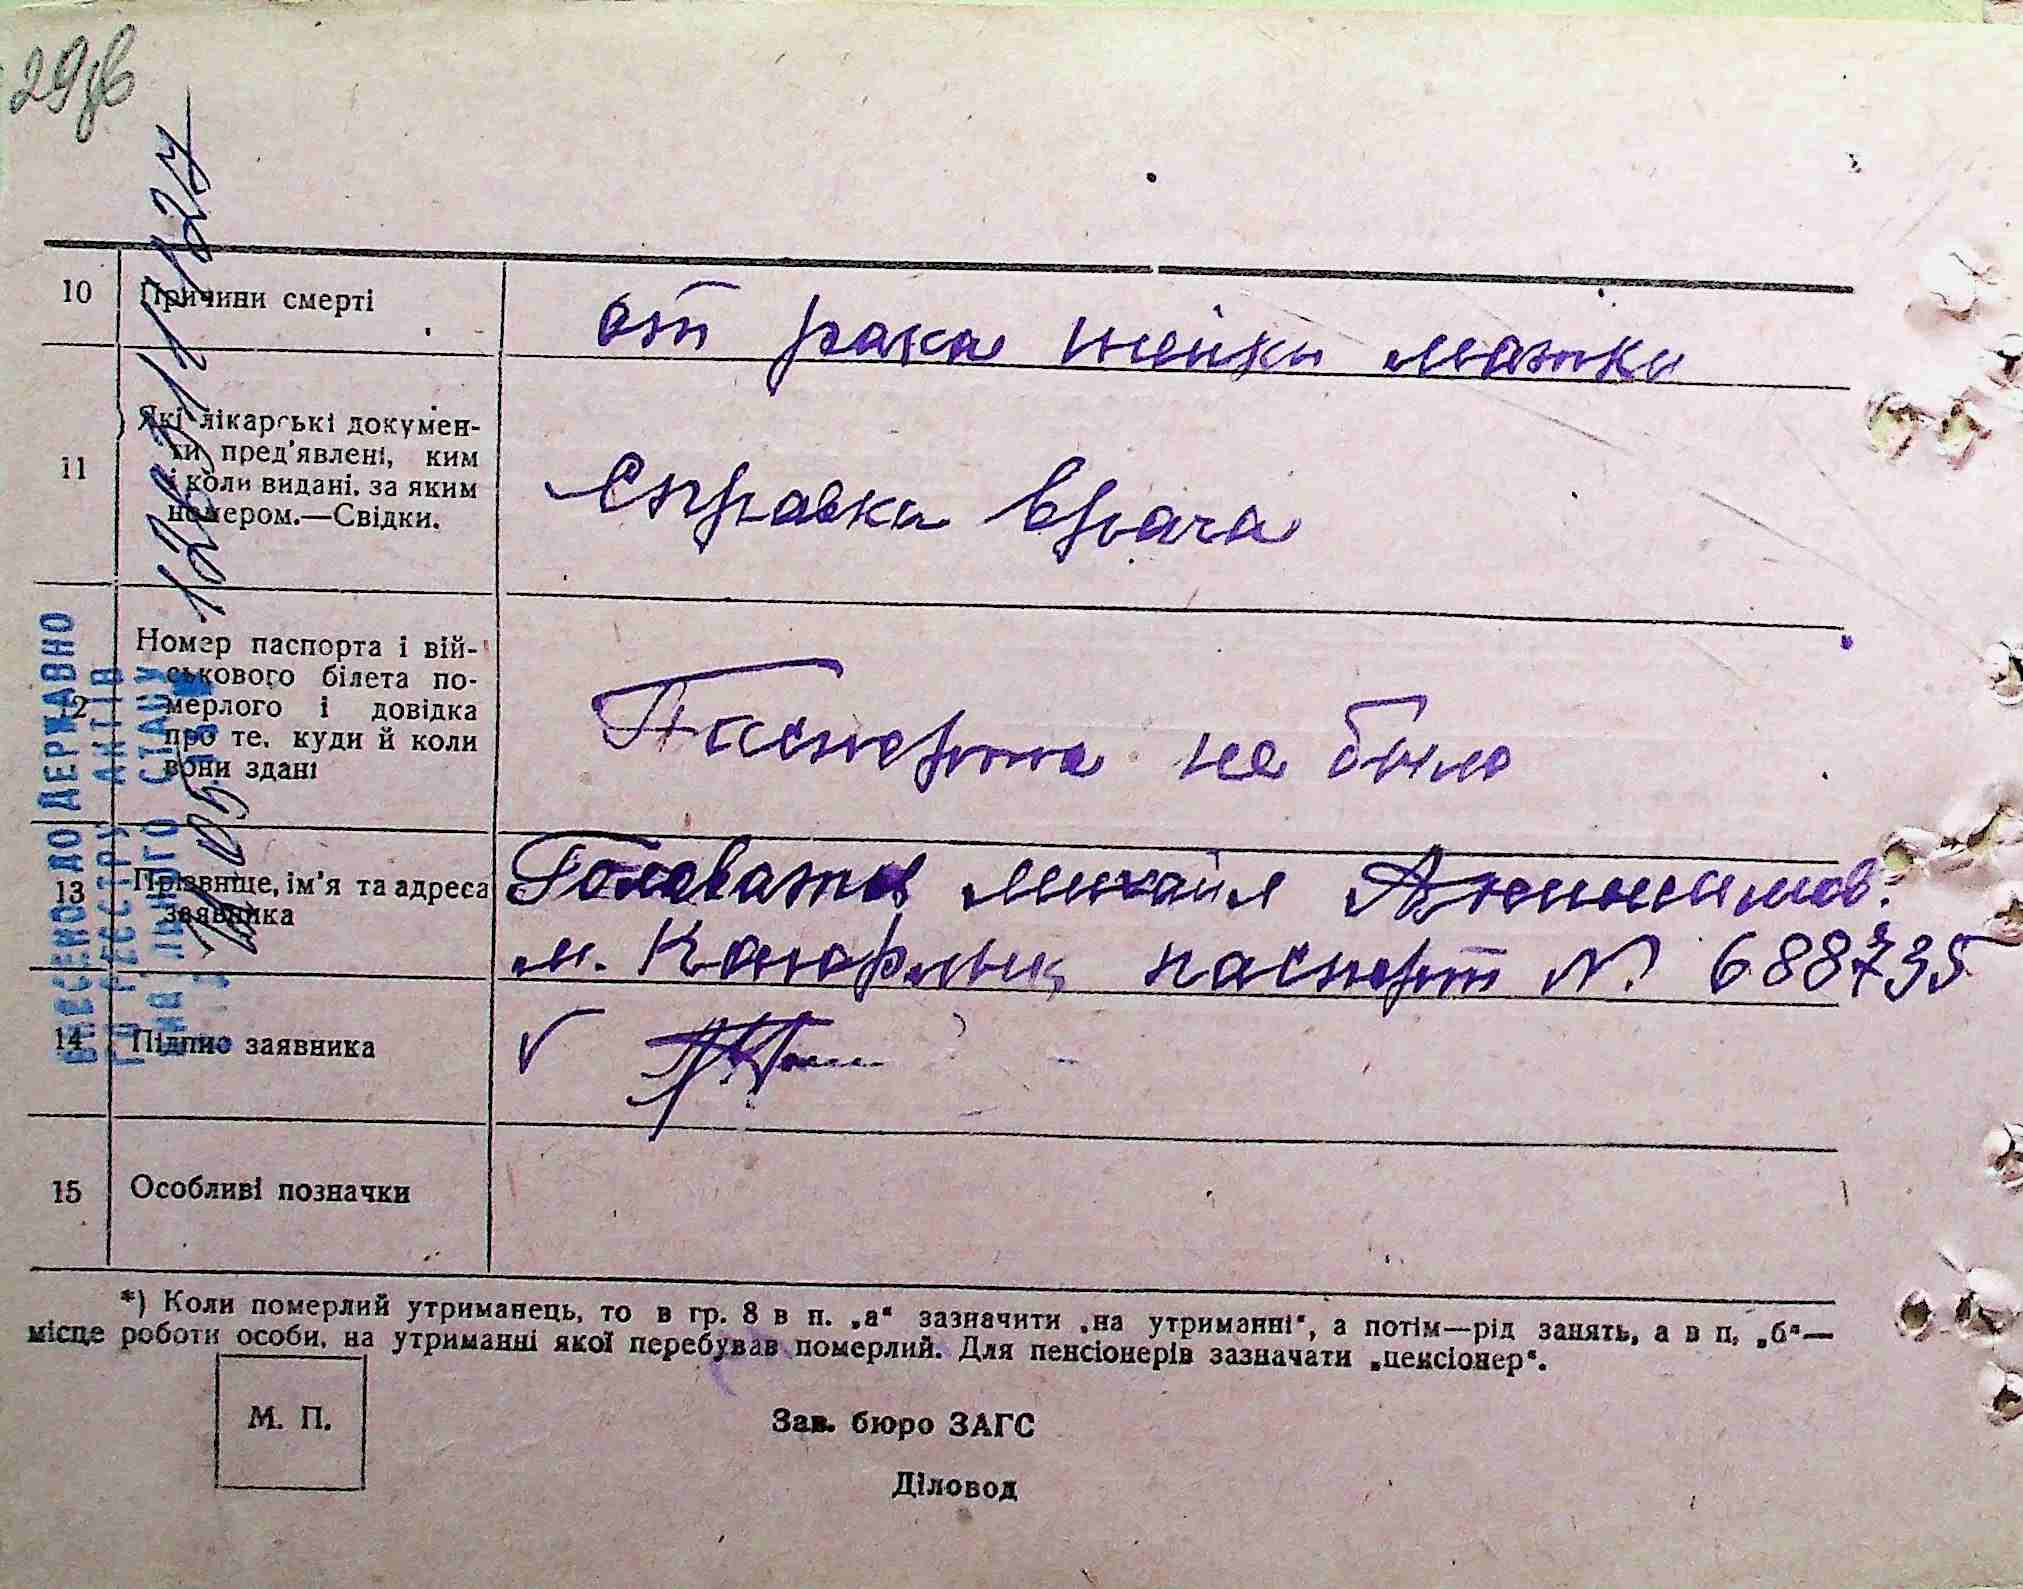 29зв
10 Причини смерті от рака шейки матки
11 Які лікарські докумен-
ти пред'явлені, ким
і коли видані, за яким
номером.—Свідки.
Справка врача
12 Номер паспорта і вій-
ськового білета по-
мерлого і довідка
про те, куди й коли
вони здані
Паспорта не было
13 Прізвище, ім'я та адреса
заявника
Головатый Михаил
м. Кагарлык, паспорт №. 688735
14 Підпис заявника
15 Особливі позначки
*) Коли померлий утриманець, то в гр. 8 в п. „а“ зазначити „на утриманні“, а потім—рід занять, а в п. „б“—
місце роботи особи, на утриманні якої перебував померлий. Для пенсіонерів зазначати „пенсіонер“.
М. П.
Зав. бюро ЗАГС
Діловод
ВНЕСЕНО ДО ДЕРЖАВНО
ГО РЕЄСТРУ АКТІВ
СТАНУ